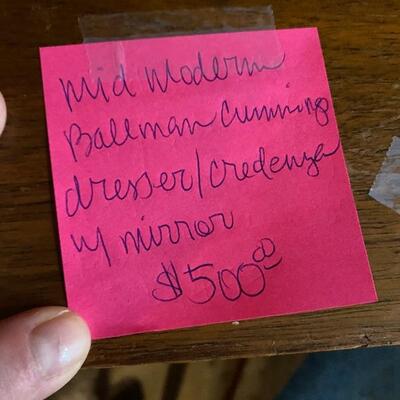 mid modern
Ballman Cummings
dresser/credenza
w/ mirror
$500.00